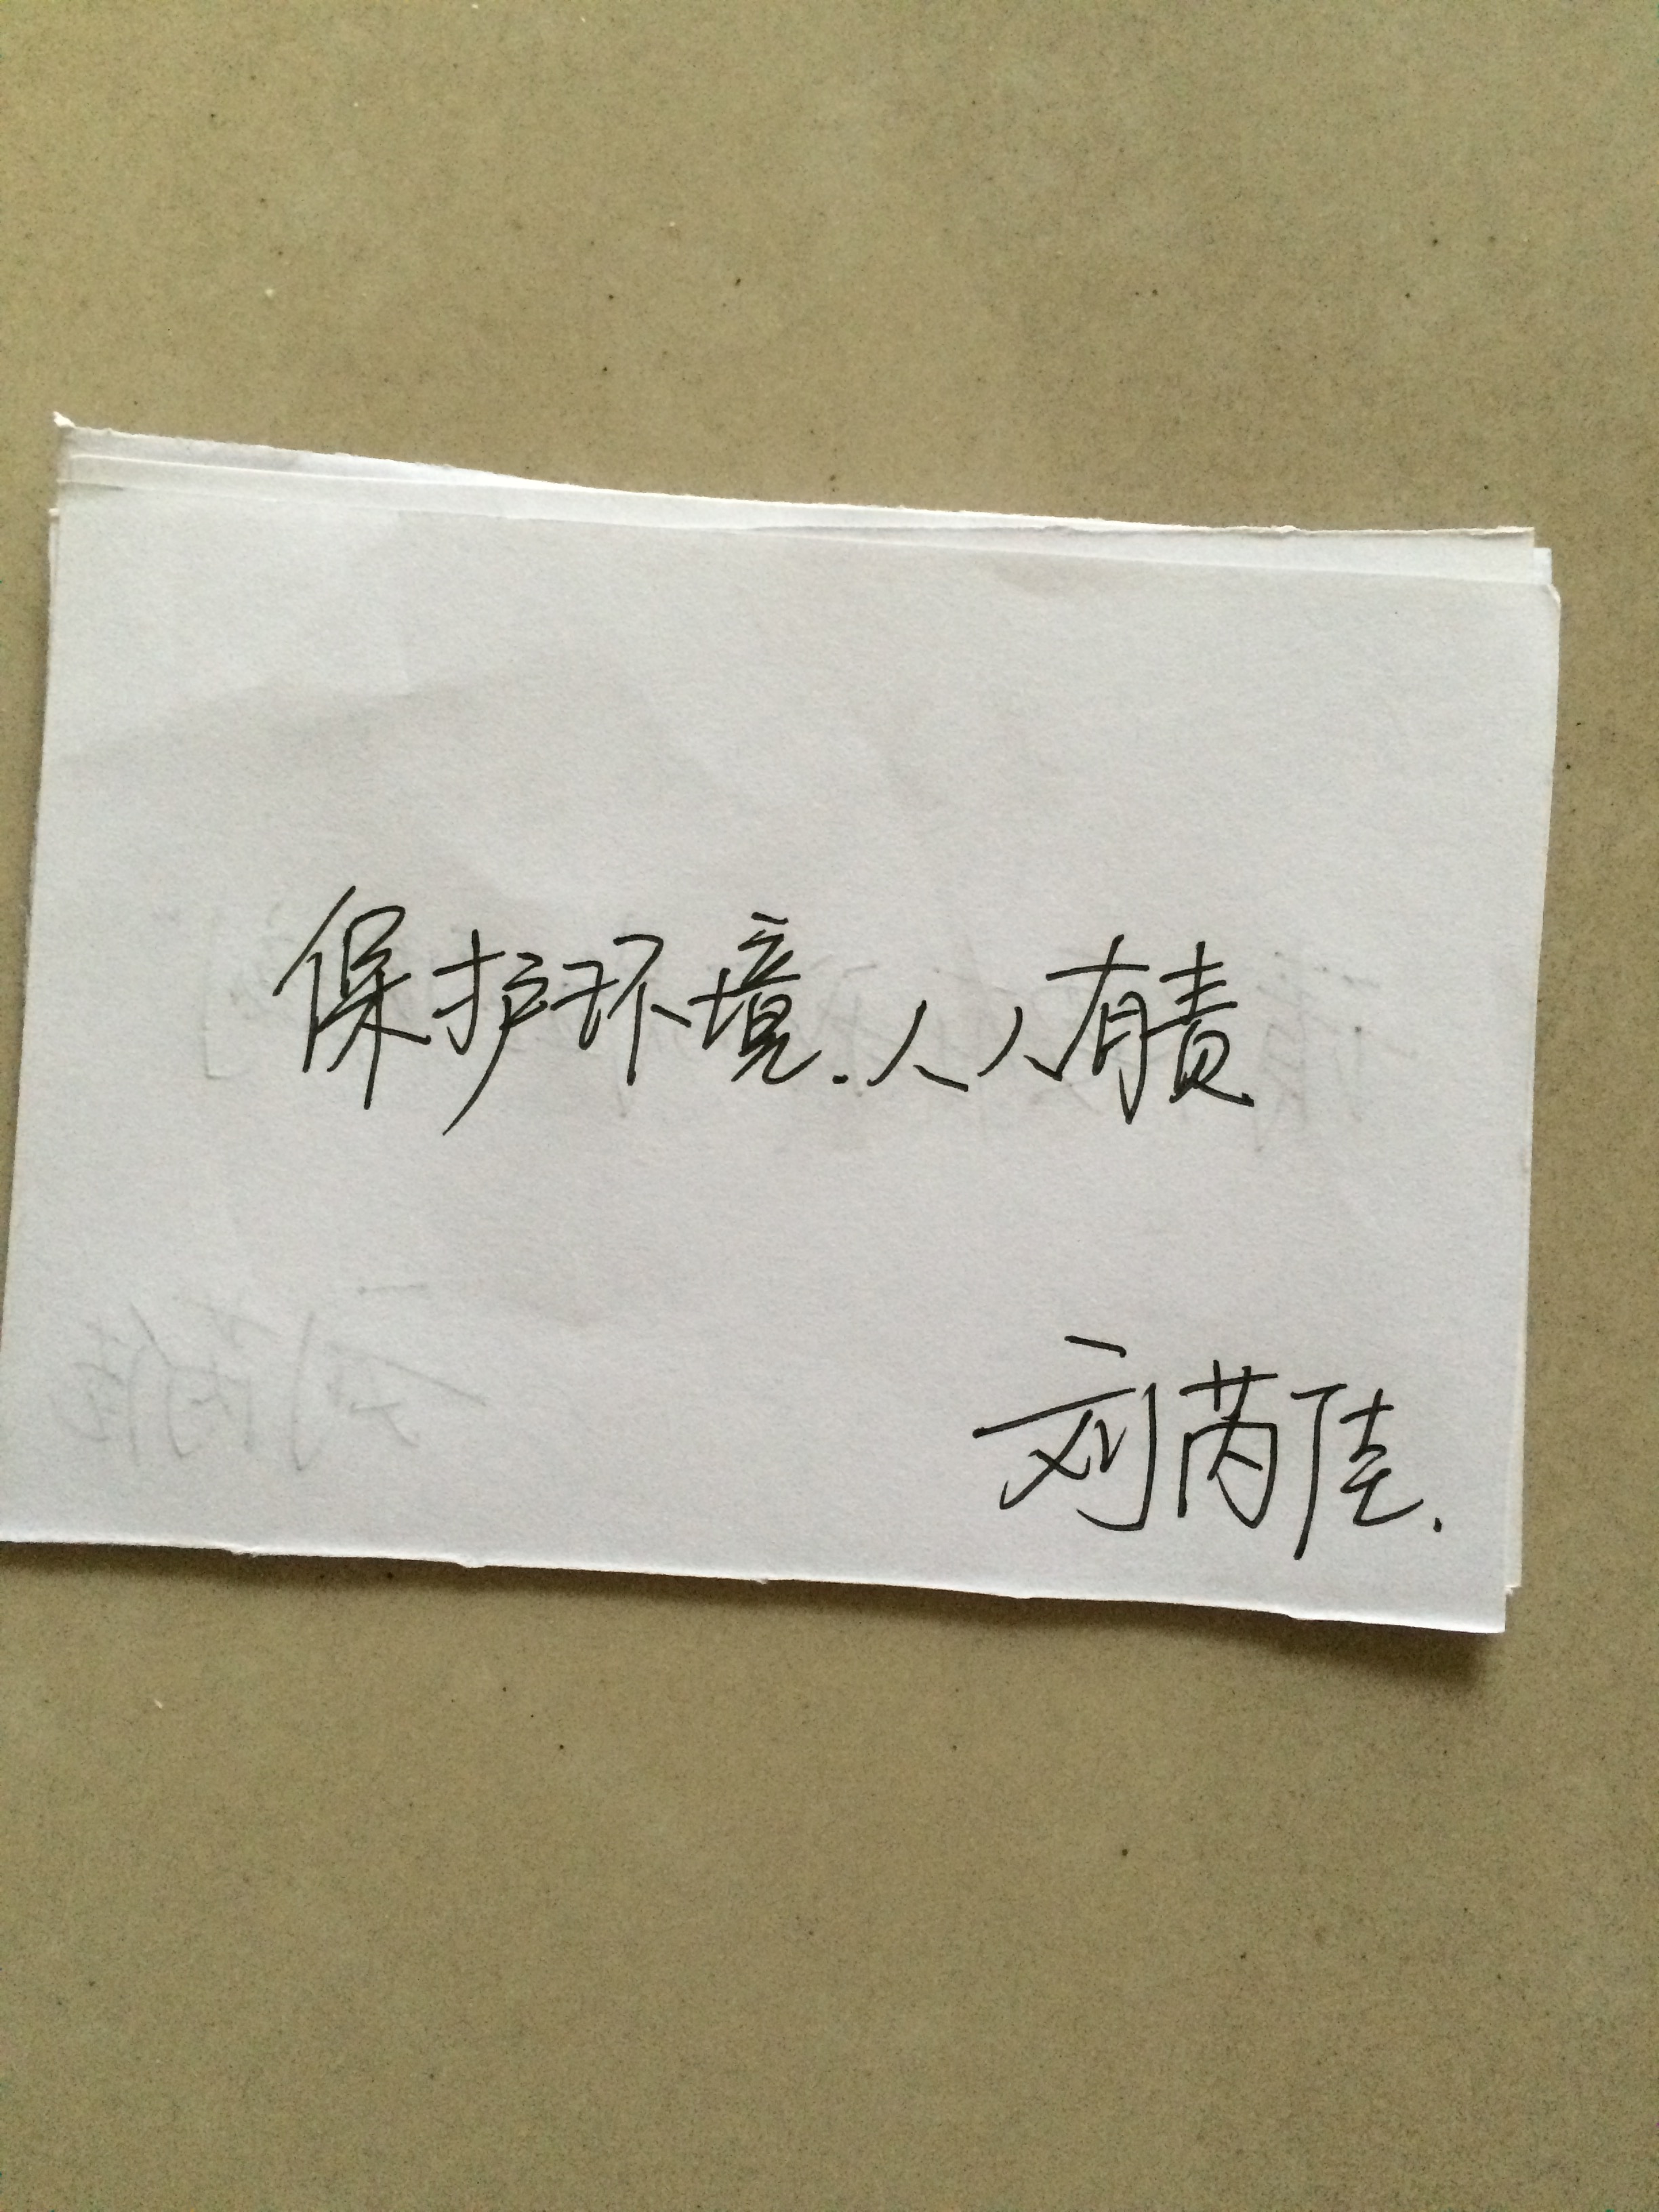 保护环境.人人有责
刘芮佳.